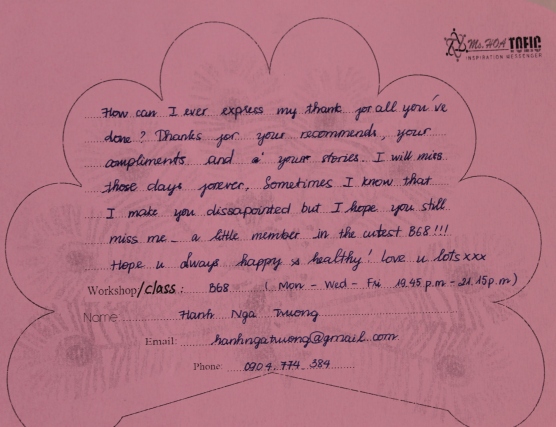 Ms. HOA TOEIC
INSPIRATION MESSENGER
How can I ever express my thank for all you've
done? Thanks for your recommends, your
compliments and your stories. I will miss
those days forever. Sometimes I know that
I make you dissapointed but I hope you still
miss me _ a little member in the cutest B68!!!
Hope u always happy & healthy! love u lots xxx
Workshop/class: B68 (Mon - Wed - Fri 19.45 p.m - 21.15p.m)
Name Hanh Nga Truong
Email: hanhngatruong@gmail.com
Phone: 0904.774.384